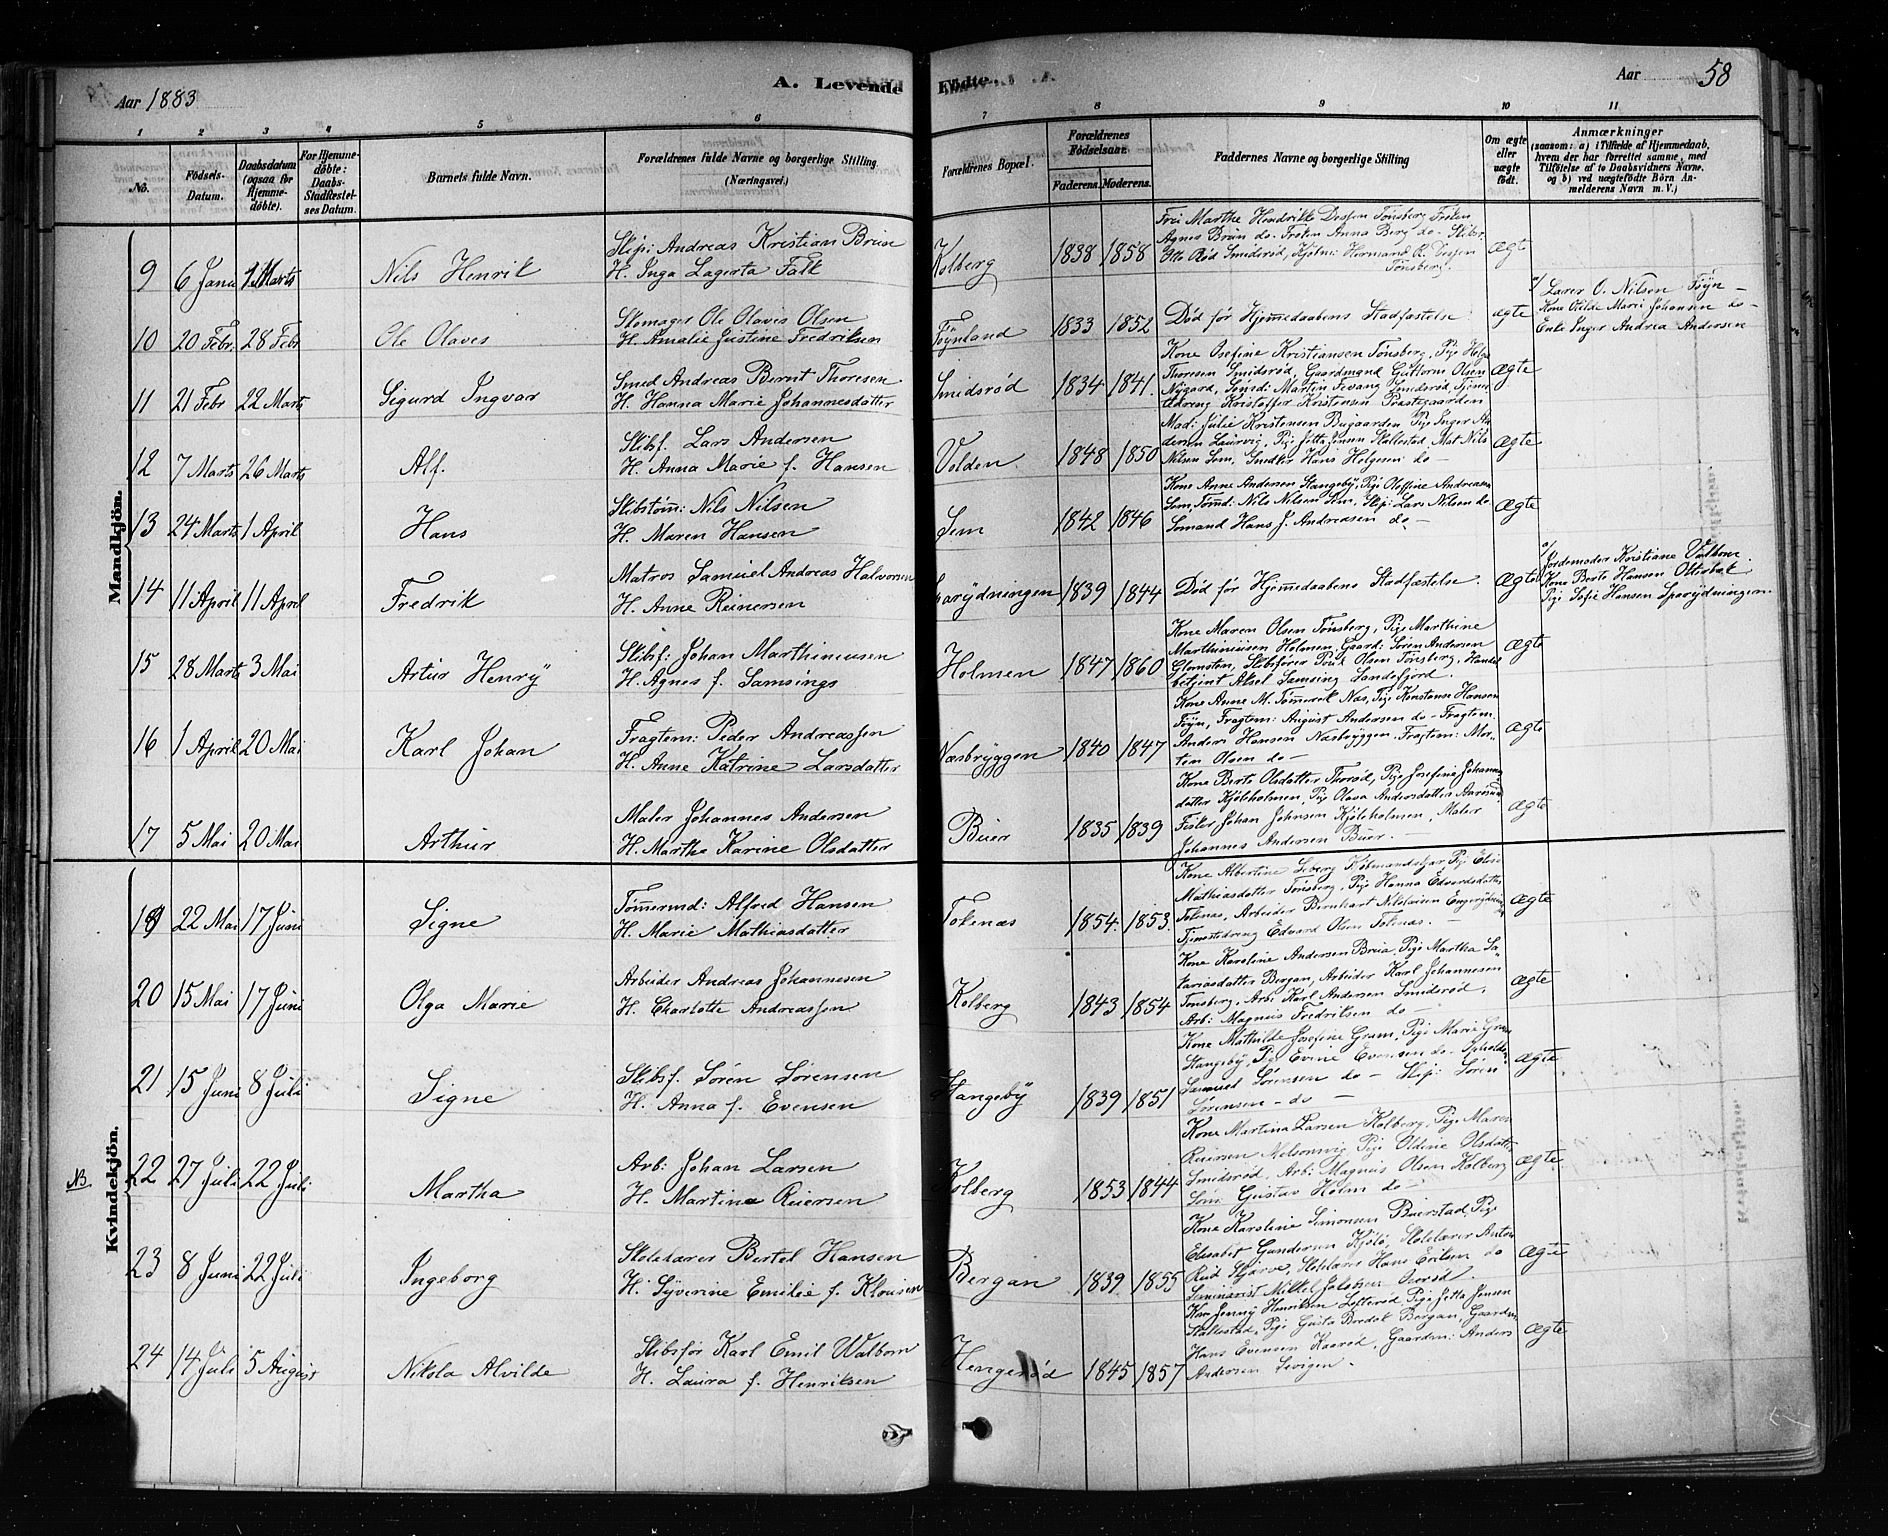 Aar 1883
A. Levende Födte.
Aar 58
1 2 3 4 5 6 7 8 9 10 11
No.
Födsels-Datum.
Daabsdatum (ogsaa for Hjemme-døbte).
For Hjemme-døbte: Daabs-Stadfæstel-ses Datum.
Barnets fulde Navn.
Forældrenes fulde Navne og borgerlige Stilling. (Næringsvei.)
Forældrenes Bopæl.
Forældrenes Födselsaar.
Faderens. Moderens.
Faddernes Navne og borgerlige Stilling
Om ægte eller uægte födt.
Anmærkninger
(saasom: a) i Tilfælde af Hjemmedaab, hvem der har forrettet samme, med Tilföielse af to Daabsvidners Navne, og b) ved uægtefödte Börn An-melderens Navn m. V.)
Mandkjön.
9 6 Janu Marts Nils Henrik
Skip: Andreas Kristian Brun
H. Inga Lagerta Falk
Kolberg 1838 1858
Frøken
Agnes Brun do Frøken Anna Berg do
Tønsberg.
ægte
10 20 Febr. 28 Febr Ole Olaves
Skomager Ole Olaves Olsen
H. Amalie Justine Fredriksen
Føynland 1833 1852
Død før Hjemmedaabens Stadfæstelse
ægte
a/ Lærer O. Nilsen Føyn
Marie Johansen do
Enke Inger Andrea Andersen
11 21 Febr 22 Marts Sigurd Ingvar
Smed Andreas Bernt Thoresen
H. Hanna Marie Johannesdatter
Smidsrød 1834 1841.
Kone Josefine Kristiansen Tønsberg, Pige
Thoresen Smidsrød, Gaardmand Guttorm Olsen
Nygard, Martin Jevang Smidsrød
Kristoffer Kristensen Prestegaarden
Ægte
12 7 Marts 26 Marts Alf.
Skibsf. Lars Andersen
H. Anna Marie f. Hansen
Volden 1848 1850
Mad: Julie Kristensen Bugaarden Pige Inger An
dersen Laurvig, Pige Jetta Jensen Skallestad Nils
Nilsen Sem, Hans Holgesen do
Ægte
13 24 Marts 1 April Hans
Skibstøm: Nils Nilsen
H. Maren Hansen
Sem 1842 1846
Kone Anne Andersen Stangeby, Pige Oleffine Andreasen
Sem, Nils Nilsen Sem, Skip: Lars Nilsen do
Sømand Hans J. Andreasen do
Ægte
14 11 April 11 April Fredrik
Matros Samuel Andreas Halvorsen
H. Anne Reinersen
1839 1844
Død før Hjemmedaabens Stadfæstelse.
Ægte
a/ Jordemoder Kristiane Valbom
Kone Berte Hansen
Pige Sofie Hansen
15 28 Marts 3 Mai Artur Henry
Skibsf: Johan Marthinusen
H. Agnes f. Samsings
Holmen 1847 1860
Kone Maren Olsen Tønsberg, Pige Marthine
Marthinusen Holmen, Gaard: Søren Andersen
Skibsfører Olsen Tønsberg, Handels
betjent Aksel Samsing Sandefjord.
Ægte
16 1 April 20 Mai Karl Johan
Fragtem: Peder Andreassen
H. Anne Katrine Larsdatter
Næsbryggen 1840 1847
Kone Anne M. Næs, Pige Konstanse Hansen
Føyn, Fragtem: August Andersen do Fragtem.
Anders Hansen Næsbryggen. Fragtem: Mor-
ten Olsen do
Ægte
17 5 Mai 20 Mai Arthur
Maler Johannes Andersen
H. Martha Karine Olsdatter
Buer 1835 1839
Kone Berte Olsdatter Thorød, Pige Josefine Johans
datter Kjøleholmen, Pige Olava Andersdatter
Fisker Johan Johnsen Kjøleholmen, Maler
Johannes Andersen Buer.
Ægte
Kvindekjön.
19 22 Mai 17 Juni Signe
Tømmermd: Alfred Hansen
H. Marie Mathiasdatter
Tokenæs 1854. 1853.
Kone Albertine Pige Elise
Mathiasdatter Tønsberg, Pige Hanna Edvardsdatter
Tokenæs, Arbeider Bernhart Nilsen
Tjenestedreng Edvard Olsen Tokenæs.
Ægte
20 15 Mai 17 Juni Olga Marie
Arbeider Andreas Johannesen
H. Charlotte Andreassen
Kolberg 1843 1854
Kone Karoline Andersen Pige Martha Za
kariasdatter Bergan, Arbeider Karl Johannesen
Tønsberg, Arb: Karl Andersen Smidsrød,
Arb: Magnus Fredriksen do
Ægte
21 15 Juni 8 Juli Signe
Skibsf. Søren Sørensen
H. Anna f. Evensen
Stangeby 1839 1851
Kone Mathilde Josefine Gram, Pige Marie Gram
Stangeby, Pige Evine Evensen do
Samuel Sørensen do Skip: Søren
Sørensen do
Ægte
NB. 22 27 Juli 22 Juli Martha
Arb: Johan Larsen
H. Martine Reiersen
Kolberg 1853 1844
Kone Martina Larsen Kolberg, Pige Maren
Melsomvig Pige Oldine Olsdatter
Smidsrød, Arb: Magnus Olsen Kolberg
Søm: Gustav Holm do
Ægte
23 8 Juni 22 Juli Ingeborg
Skolelærer Bertel Hansen
H. Syverine Emilie f. Klousen
Bergan 1839 1855
Kone Karoline Simonsen Buerstad, Pige
Elisabet Gundersen Kjølø, Skolelærer Anton
Rød Skjærve, Skolelærer Hans Eriksen do
Seminarist Mikkel Jakobsen
Ægte
24 14 Juli 5 August Nikola Alvilde
Skibsfør Karl Emil Walbom
H. Laura f. Henriksen
Hengerød 1845 1857
Kone Jenny Henriksen Lofterød Pige Jetta Jensen
Skallestad, Pige Gusta Bredek Bergan, Gaardm
Hans Evensen Kaarød, Gaardm: Anders
Andersen
Ægte